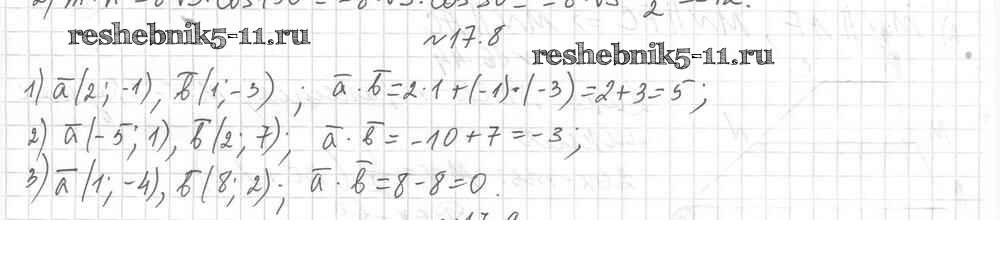 reshebnik5-11.ru
№17.8
reshebnik5-11.ru
1) a̅(2; -1), b̅(1; -3) ; a̅ · b̅ = 2·1 + (-1)·(-3) = 2+3 = 5;
2) a̅(-5; 1), b̅(2; 7); a̅ · b̅ = -10+7 = -3;
3) a̅(1; -4), b̅(8; 2); a̅ · b̅ = 8-8 = 0.